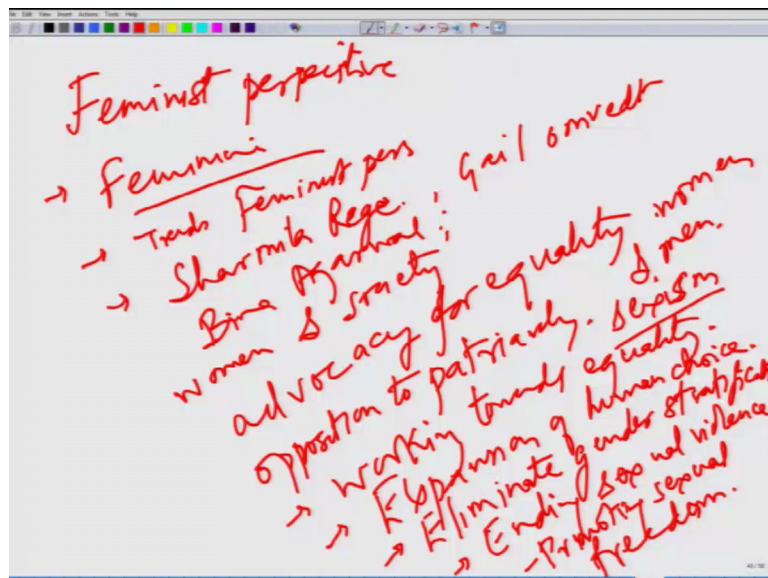 File Edit View Insert Actions Tools Help
Feminist perspective
→ Feminism
→ Trends Feminist pers
→ Sharmila Rege. ; Gail omvedt
Bina Agarwal ;
women & society
advocacy for equality women & men.
opposition to patriarchy. sexism
→ working towards equality.
→ Expansion of human choice.
→ Eliminate gender stratificat
→ Ending sexual violence
- Promoting sexual
freedom.